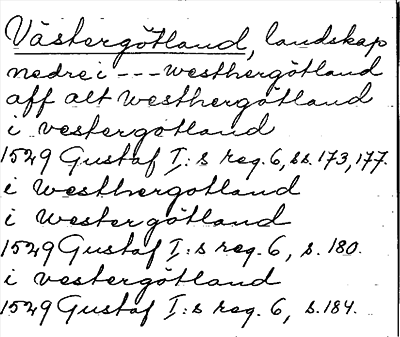 Västergötland, landskap
nedre i --- westhergötland
aff alt westhergötland
i vestergötland
1529 Gustaf I:s reg. 6, ss. 173, 177.
i westhergotland
i westergötland
1529 Gustaf I:s reg. 6, s. 180.
i vestergötland
1529 Gustaf I:s reg. 6, s. 184.